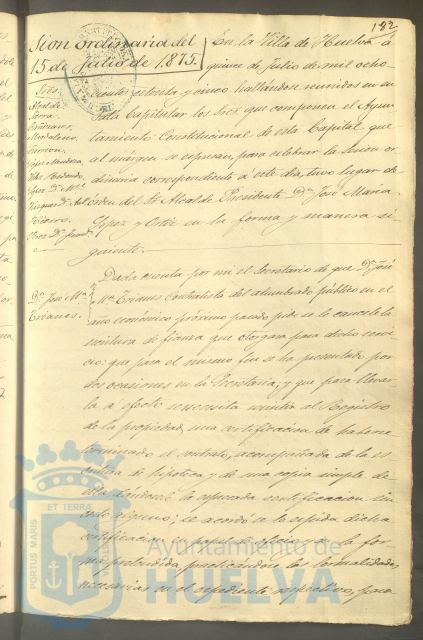 182
Sion ordinaria del
15 de Julio de 1875.
En la Villa de Huelva á
quince de Julio de mil ocho-
cientos setenta y cinco hallándose reunidos en su
Sala Capitular los Sres que componen el Ayun-
tamiento Constitucional de esta Capital que
al margen se espresan, para celebrar la sesion or-
dinaria correspondiente á este dia, tuvo lugar de
orden del Sr Alcalde Presidente Dn José Maria
Lopez y Ortiz en la forma y manera si-
guiente.
Sres.
Alcalde
Serra
Lopez Mendoza
Dn José Ma
Trianes.
Dada cuenta por mi el Secretario de que Dn José
Ma Trianes contratista del alumbrado público en el
año económico próximo pasado pide se le cancele la
escritura de fianza que otorgara para dicho servi-
cio: que para el mismo fin se ha presentado por
dos ocasiones en la Secretaria, y que para llevar-
la á efecto necesita remitir al Registro
de la propiedad una certificacion de haberse
terminado el contrato, acompañada de la es-
critura de hipoteca y de una copia simple de
ella
se acordó se le espida dicha
certificacion en papel de oficio en la for-
ma pretendida practicándose las formalidades
necesarias en el espediente respectivo, para
PORTUS MARIS
ET TERRA
Ayuntamiento de
HUELVA